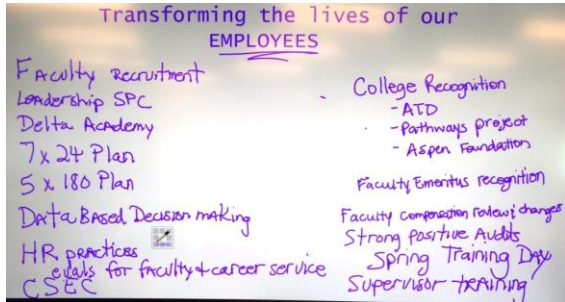 Transforming the lives of our
EMPLOYEES
Faculty Recruitment
Leadership SPC
Delta Academy
7 x 24 Plan
5 x 180 Plan
Data Based Decision making
HR practices
evals for faculty + career service
CSEC
College Recognition
- ATD
- Pathways project
- Aspen Foundation
Faculty Emeritus recognition
Faculty compensation review & changes
Strong positive Audits
Spring Training Day
Supervisor training